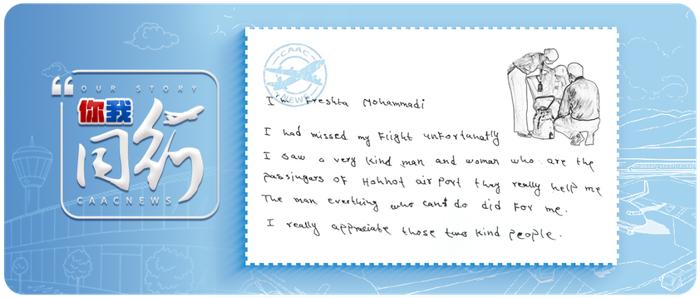 OUR STORY
你我
同行
CAACNEWS
CAAC
NEWS
I'm Freshta Mohammadi
I had missed my Flight unfortunatly
I saw a very kind man and woman who are the
passingers of Hohhot air port they really help me
The man everthing who can't do did for me.
I really appreciate those two kind people.